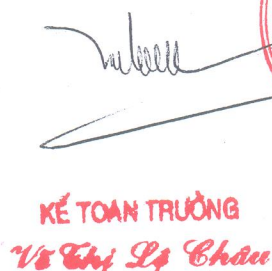 KẾ TOÁN TRƯỞNG
Võ Thị Lệ Châu